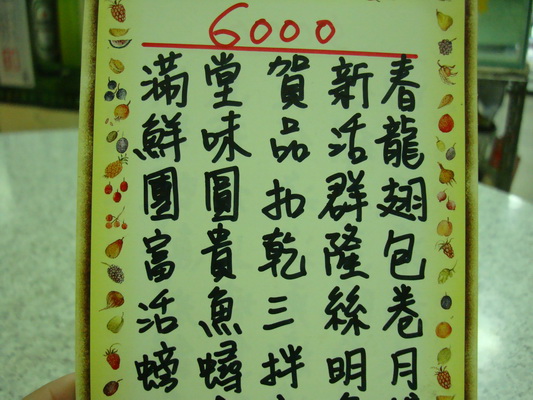 6000
滿堂賀新春
鮮味品活龍
團圓扣群翅
富貴乾隆包
活魚三絲卷
螃蟳拌明月